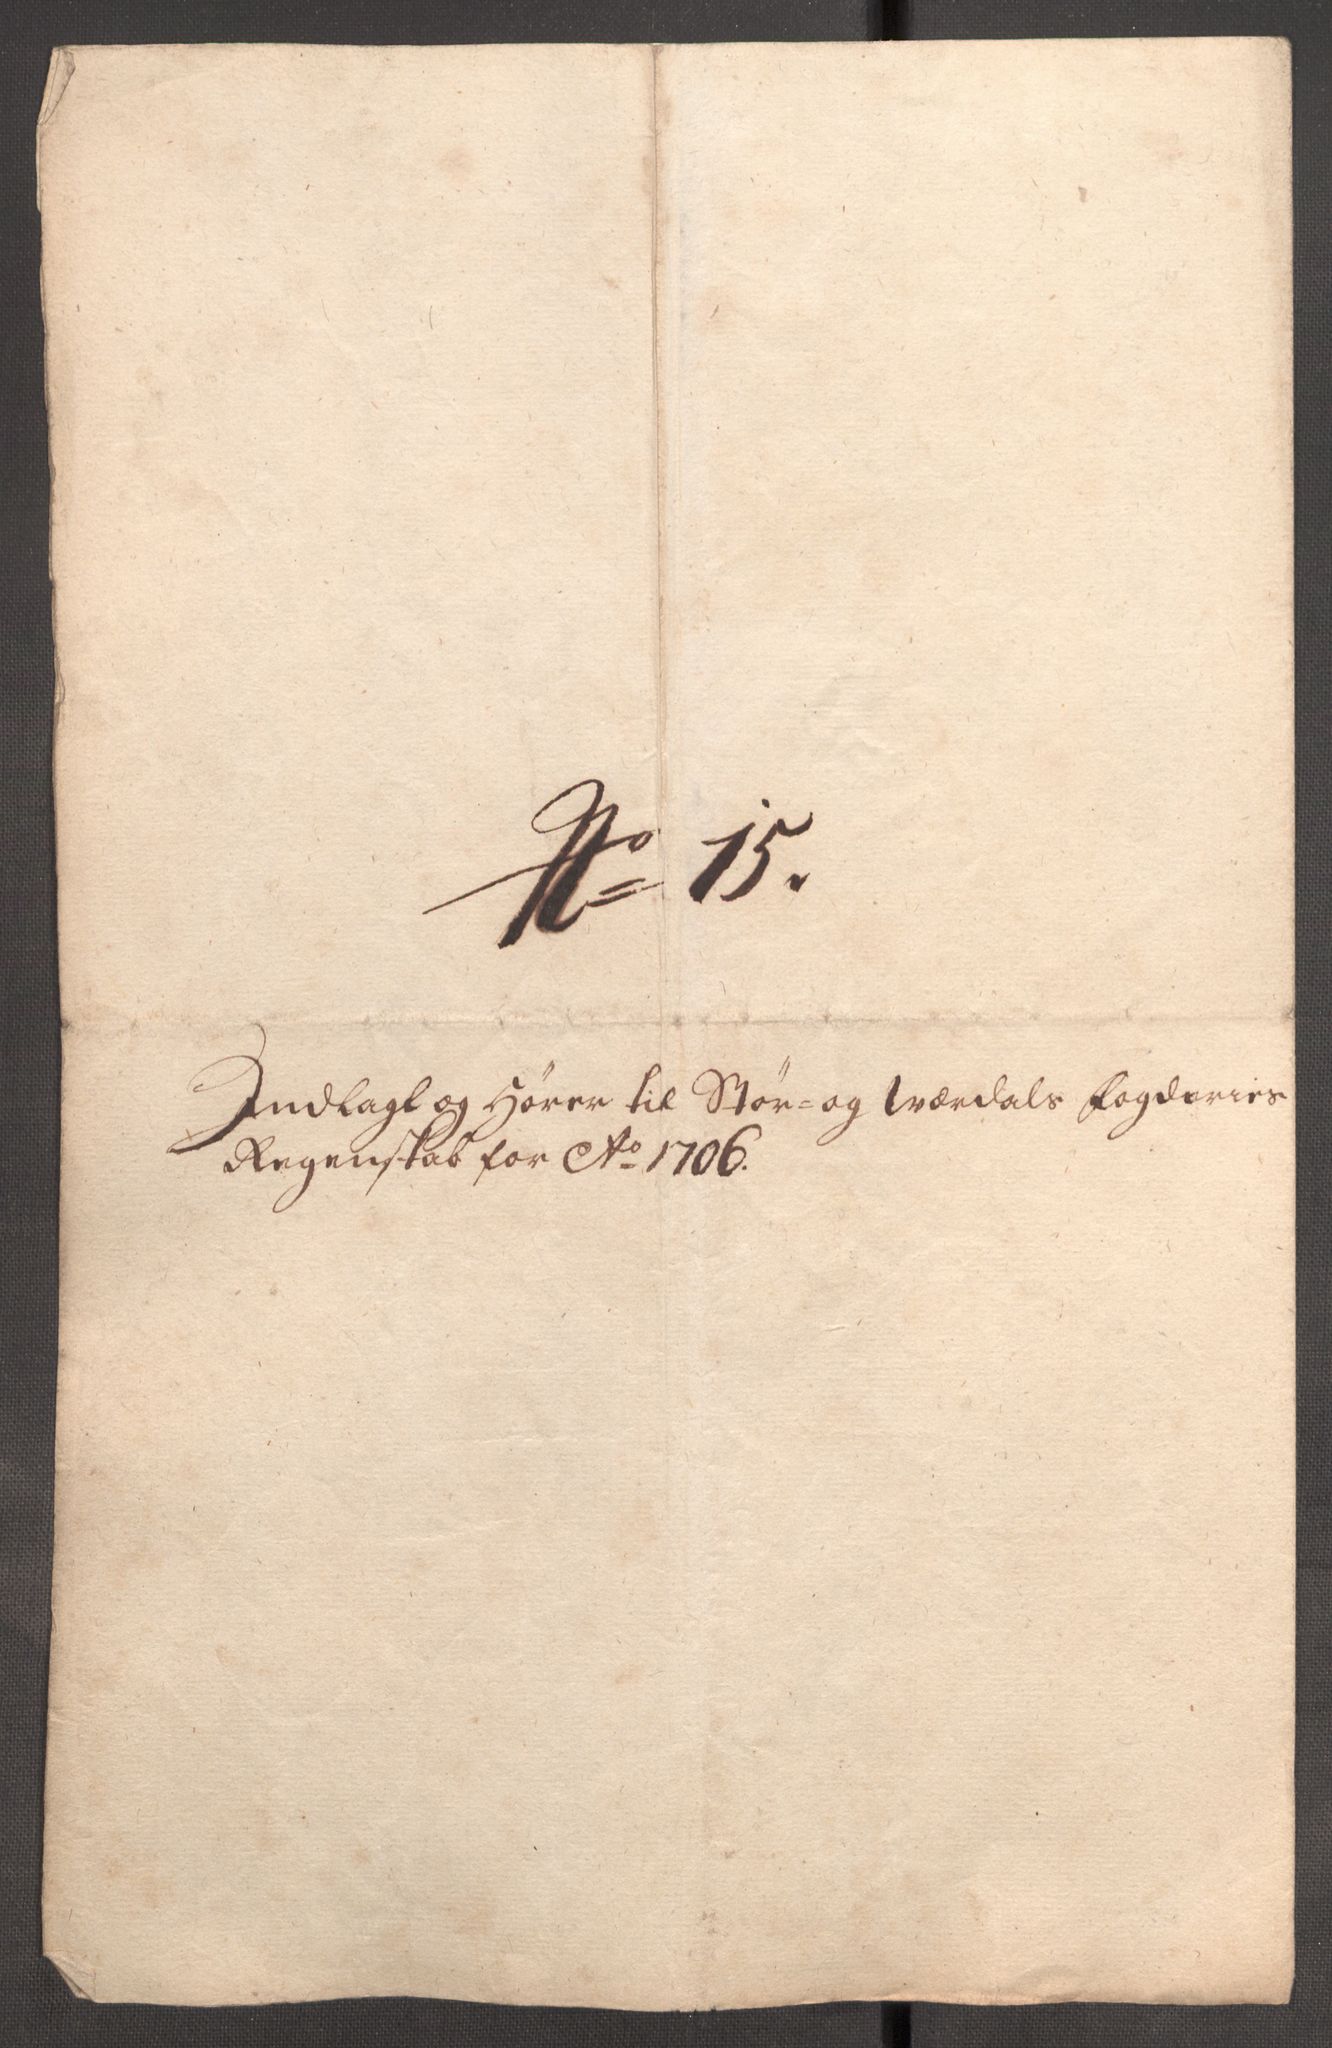 No 15.
Indlagt og Hører til Stør- og Værdals Fogderies
Regenskab for Ao 1706.